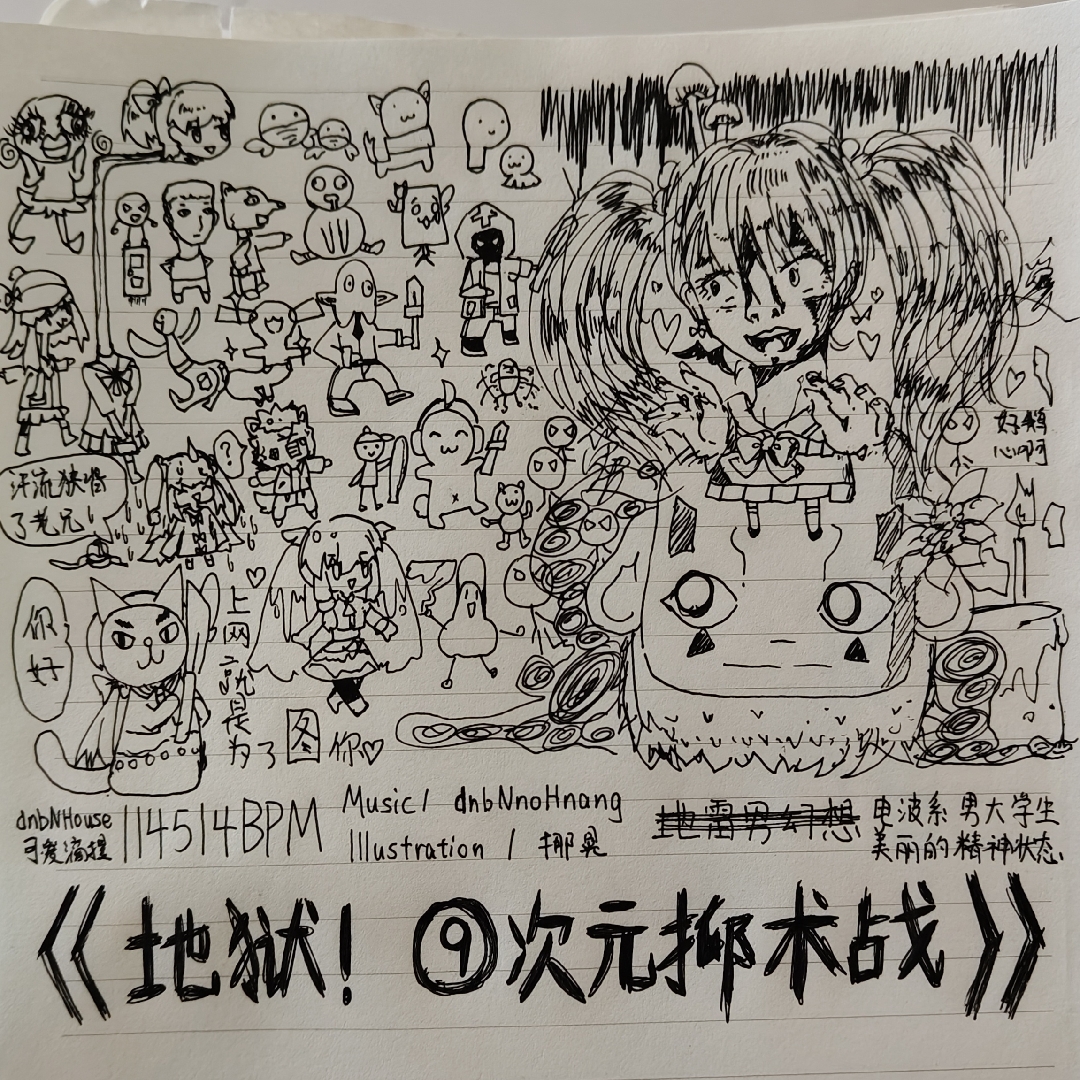 爱
好鹅
心啊
?
汗流狭背
了老元!
你
好
上
网
就
是
为了图你♡
dnbNHouse
可爱
114514BPM
Music/ dnbNnoHnang
Illustration / 挪晃
地雷男幻想
电波系男大学生
美丽的精神状态
《地狱! ⑨次元抑术战》